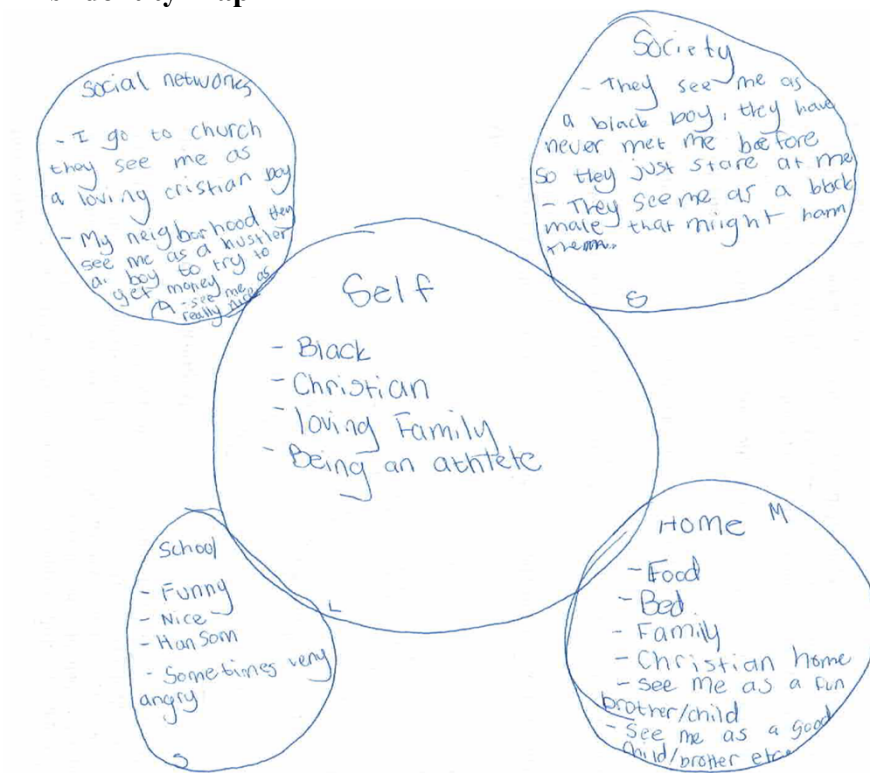 Social networks
- I go to church
they see me as
a loving cristian boy
- My neigborhood they
see me as a hustler
a boy to try to
get money
- see me as
really nice
Society
- They see me as
a black boy, they have
never met me before
so they just stare at me
- They see me as a black
male that might harm
them.
S
Self
- Black
- Christian
- loving Family
- Being an athlete
L
School
- Funny
- Nice
- HanSom
- Sometimes very
angry
S
Home M
- Food
- Bed
- Family
- Christian home
- see me as a fun
brother/child
- See me as a good
child/brother etc